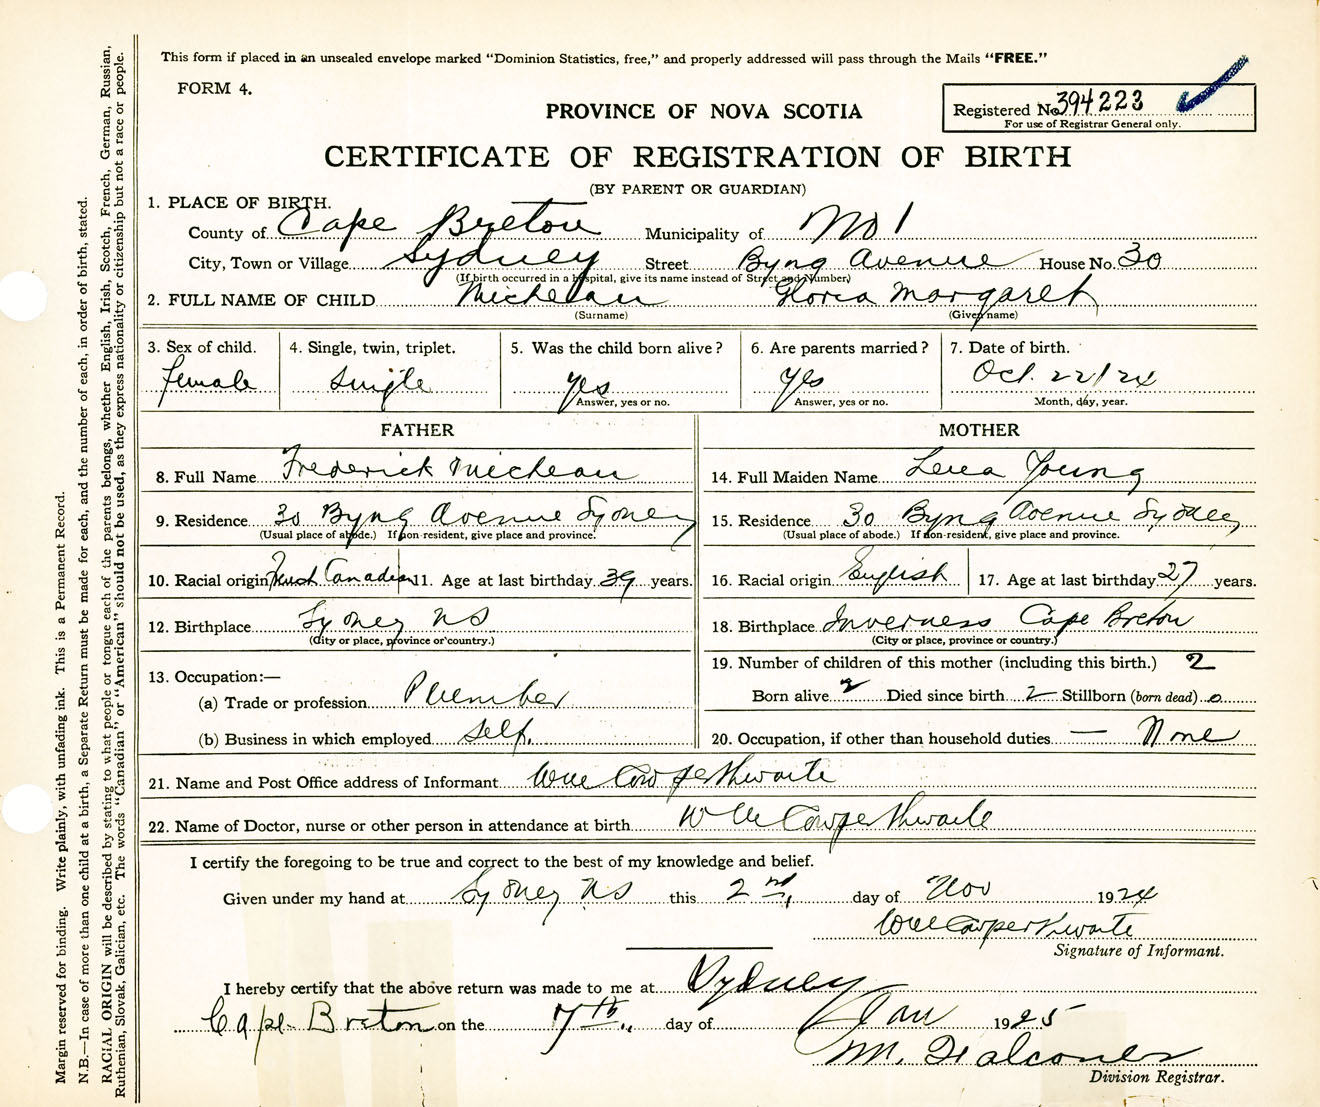 This form if placed in an unsealed envelope marked "Dominion Statistics, free," and properly addressed will pass through the Mails "FREE."
FORM 4.
Registered No. 394223
For use of Registrar General only.
PROVINCE OF NOVA SCOTIA
CERTIFICATE OF REGISTRATION OF BIRTH
(BY PARENT OR GUARDIAN)
1. PLACE OF BIRTH.
County of Cape Breton Municipality of No 1
City, Town or Village Sydney Street Byng Avenue House No. 30
(If birth occurred in a hospital, give its name instead of Street and Number)
2. FULL NAME OF CHILD Micheau Gloria Margaret
(Surname) (Given name)
3. Sex of child. 4. Single, twin, triplet. 5. Was the child born alive? 6. Are parents married? 7. Date of birth.
female single yes yes Oct. 22/24
Answer, yes or no. Answer, yes or no. Month, day, year.
FATHER MOTHER
8. Full Name Frederick Micheau 14. Full Maiden Name Lena Young
9. Residence 30 Byng Avenue Sydney 15. Residence 30 Byng Avenue Sydney
(Usual place of abode.) If non-resident, give place and province. (Usual place of abode.) If non-resident, give place and province.
10. Racial origin French Canadian 11. Age at last birthday 39 years. 16. Racial origin English 17. Age at last birthday 27 years.
12. Birthplace Sydney NS 18. Birthplace Inverness Cape Breton
(City or place, province or country.) (City or place, province or country.)
13. Occupation:— 19. Number of children of this mother (including this birth.) 2
(a) Trade or profession Plumber Born alive 2 Died since birth 2 Stillborn (born dead) 0
(b) Business in which employed Self. 20. Occupation, if other than household duties — None
21. Name and Post Office address of Informant Wm Cowperthwaite
22. Name of Doctor, nurse or other person in attendance at birth Wm Cowperthwaite
I certify the foregoing to be true and correct to the best of my knowledge and belief.
Given under my hand at Sydney NS this 2nd, day of Nov 1924
Wm Cowperthwaite
Signature of Informant.
I hereby certify that the above return was made to me at Sydney
Cape Breton on the 7th., day of Jan 1925
M. Falconer
Division Registrar.
Margin reserved for binding. Write plainly, with unfading ink. This is a Permanent Record.
N.B.—In case of more than one child at a birth, a Separate Return must be made for each, and the number of each, in order of birth, stated.
RACIAL ORIGIN will be described by stating to what people or tongue each of the parents belongs, whether English, Irish, Scotch, French, German, Russian,
Ruthenian, Slovak, Galician, etc. The words "Canadian" or "American" should not be used, as they express nationality or citizenship but not a race or people.